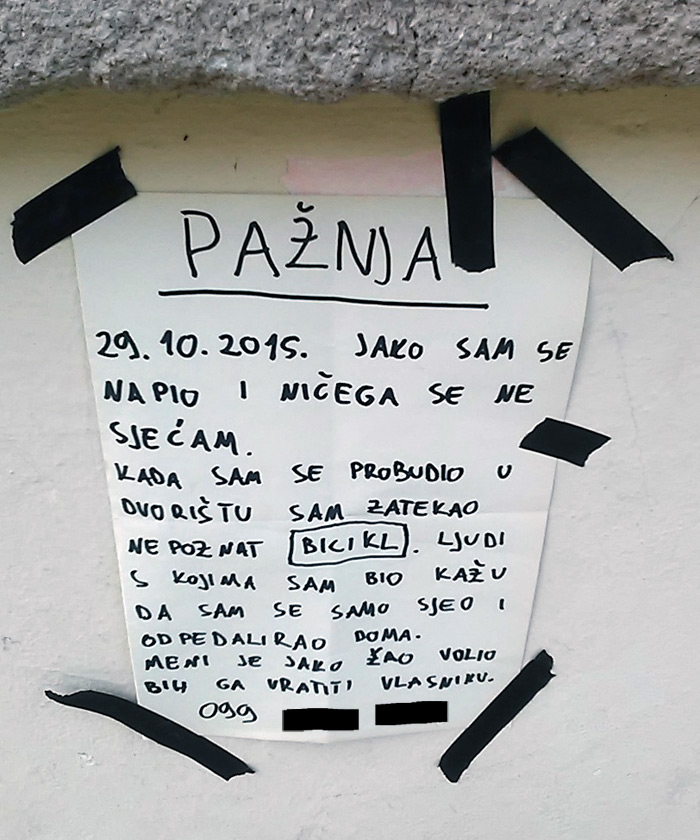 PAŽNJA
29.10.2015. JAKO SAM SE
NAPIO I NIČEGA SE NE
SJEĆAM.
KADA SAM SE PROBUDIO U
DVORIŠTU SAM ZATEKAO
NEPOZNAT BICIKL. LJUDI
S KOJIMA SAM BIO KAŽU
DA SAM SE SAMO SJEO I
ODPEDALIRAO DOMA.
MENI JE JAKO ŽAO VOLIO
BIH GA VRATITI VLASNIKU.
099